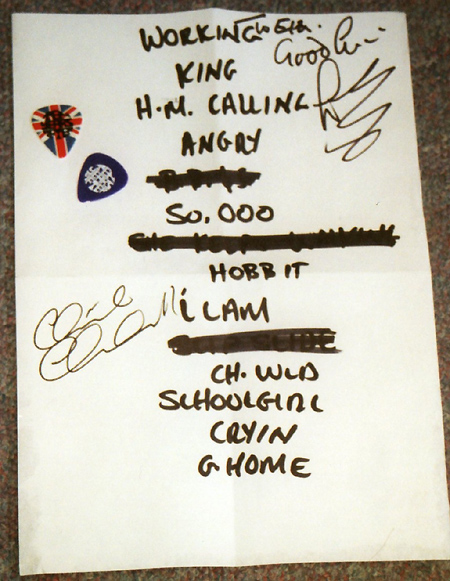 WORKING
Good
KING
H.M. CALLING
ANGRY
50.000
HOBBIT
I CAM
CH. WLD
SCHOOLGIRL
CRYIN
G HOME